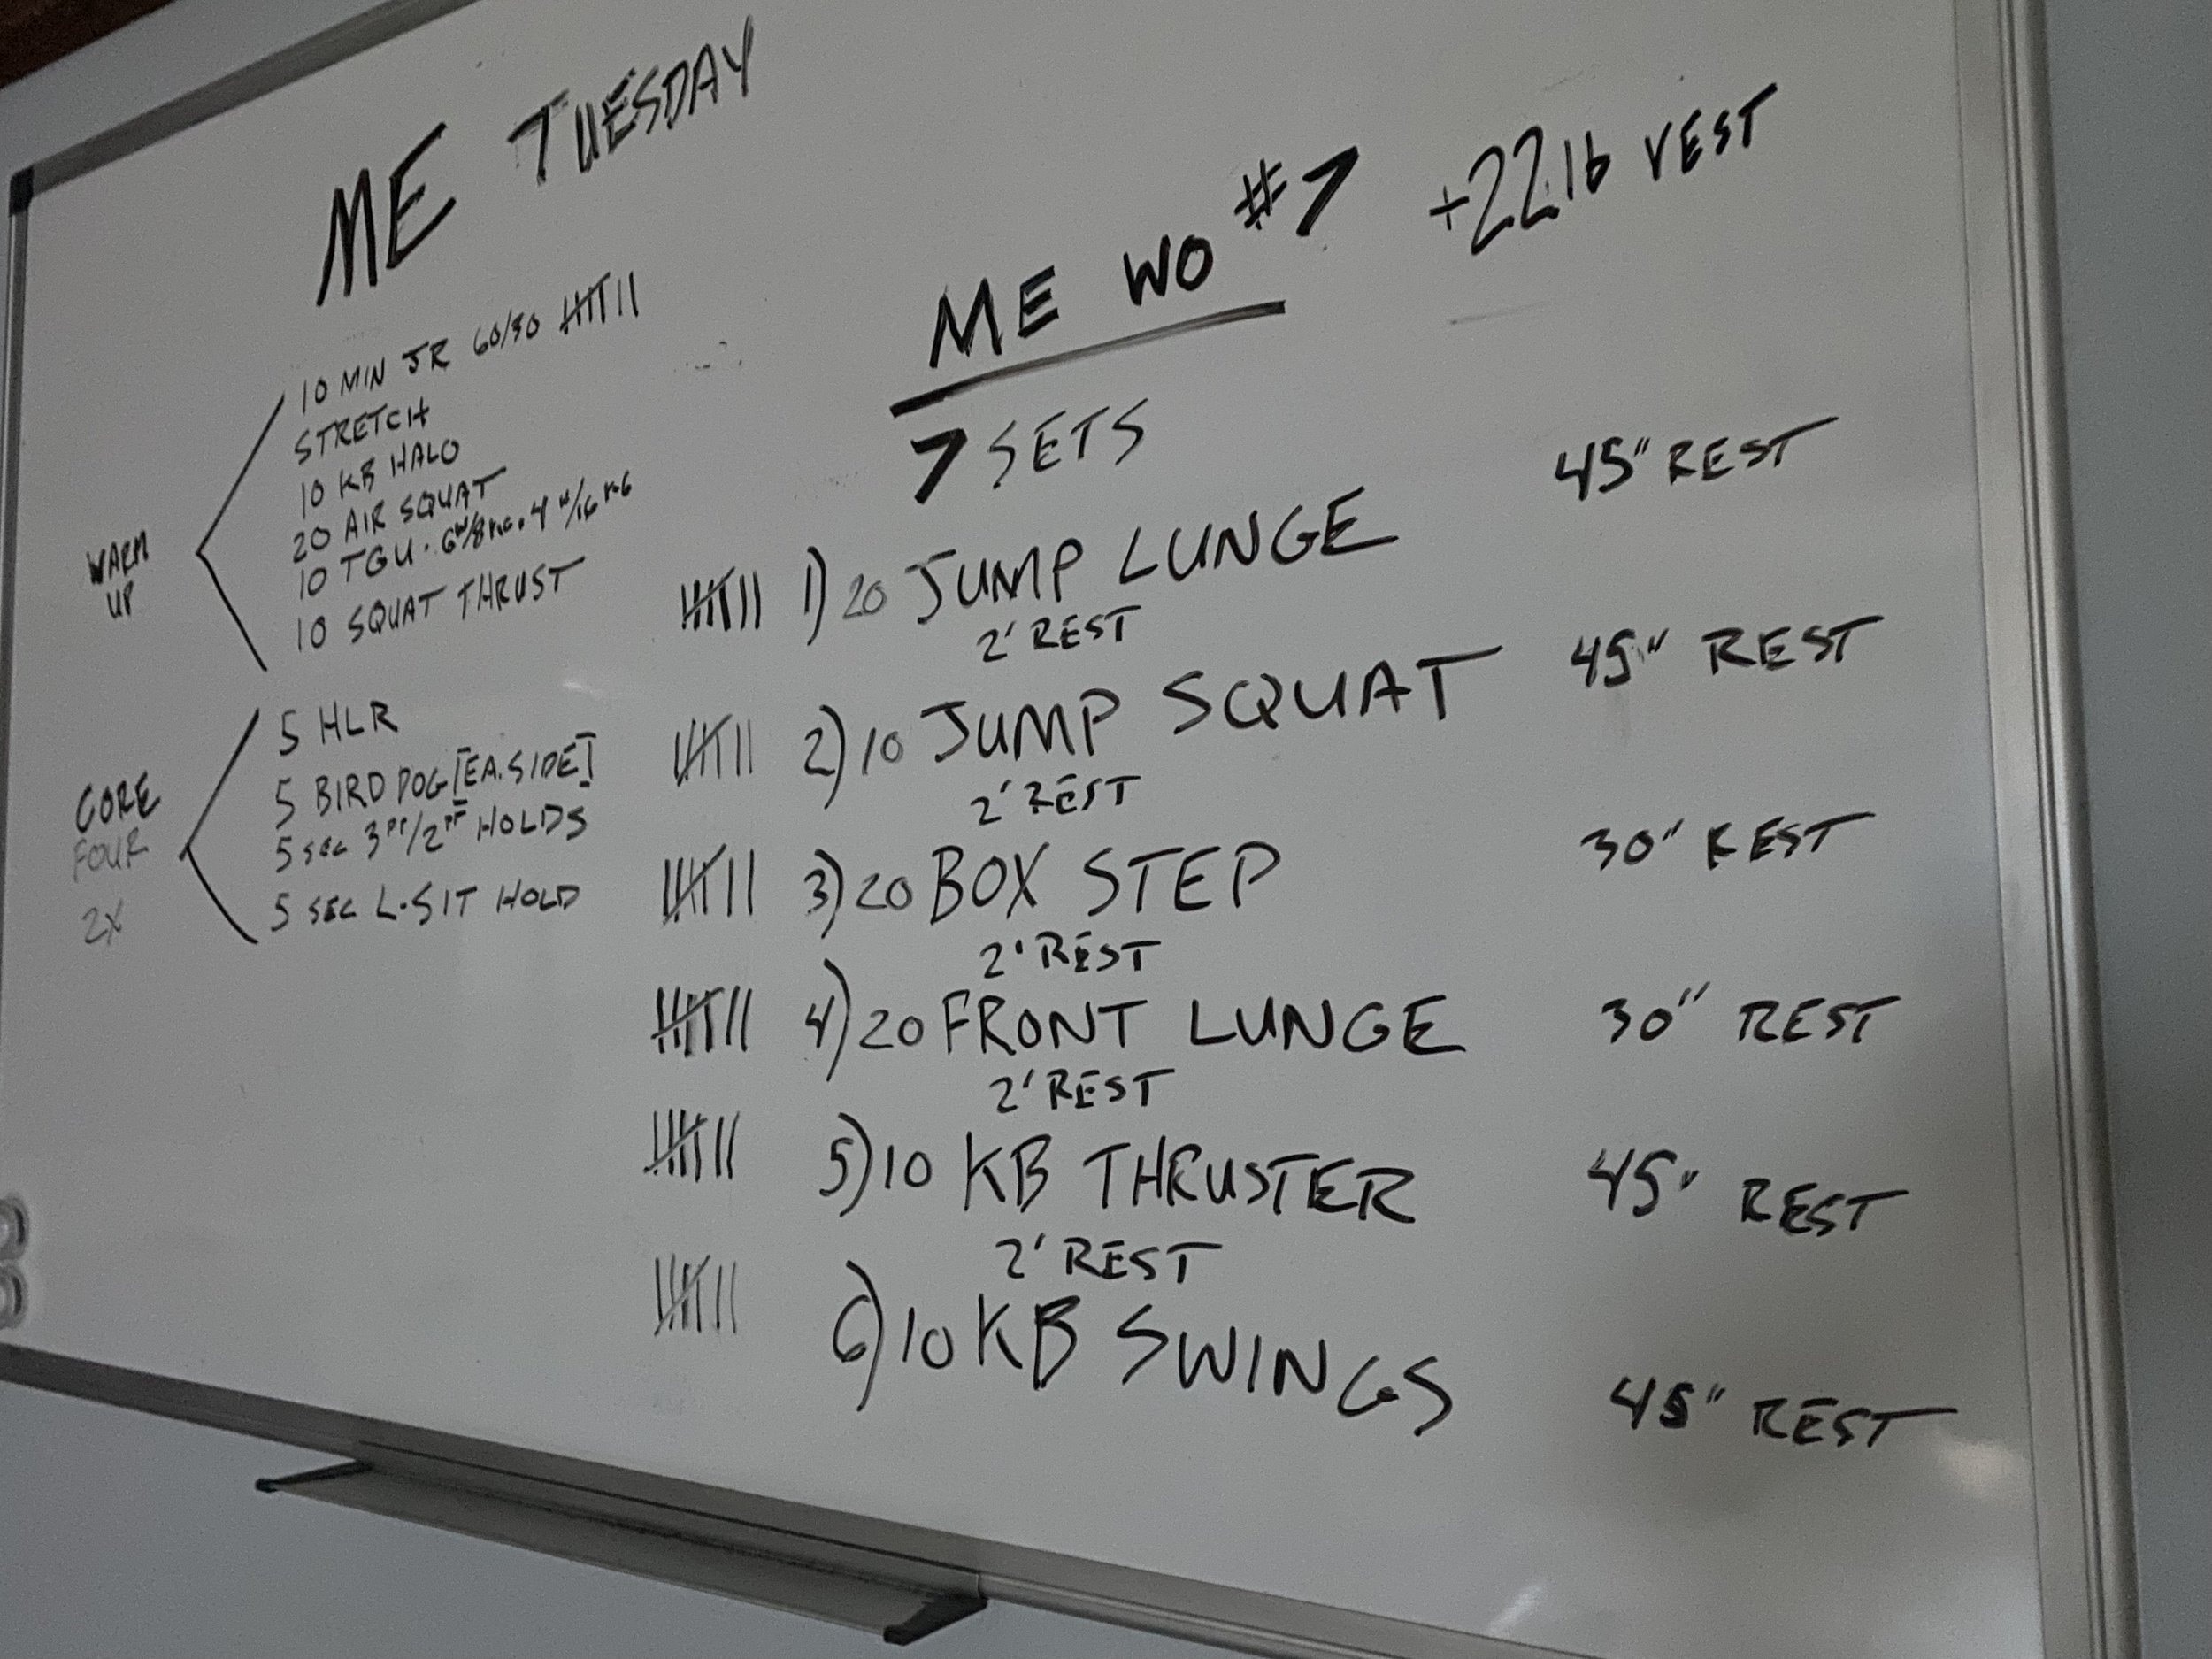 ME TUESDAY
WARM
UP
10 MIN JR 60/30
STRETCH
10 KB HALO
20 AIR SQUAT
10 TGU · 6 W/8 KG · 4 W/16 KG
10 SQUAT THRUST
CORE
FOUR
2X
5 HLR
5 BIRD DOG [EA. SIDE]
5 SEC 3PT/2PT HOLDS
5 SEC L·SIT HOLD
ME WO #7 +22lb VEST
7 SETS
1) 20 JUMP LUNGE 45" REST
2' REST
2) 10 JUMP SQUAT 45" REST
2' REST
3) 20 BOX STEP 30" REST
2' REST
4) 20 FRONT LUNGE 30" REST
2' REST
5) 10 KB THRUSTER 45" REST
2' REST
6) 10 KB SWINGS 45" REST